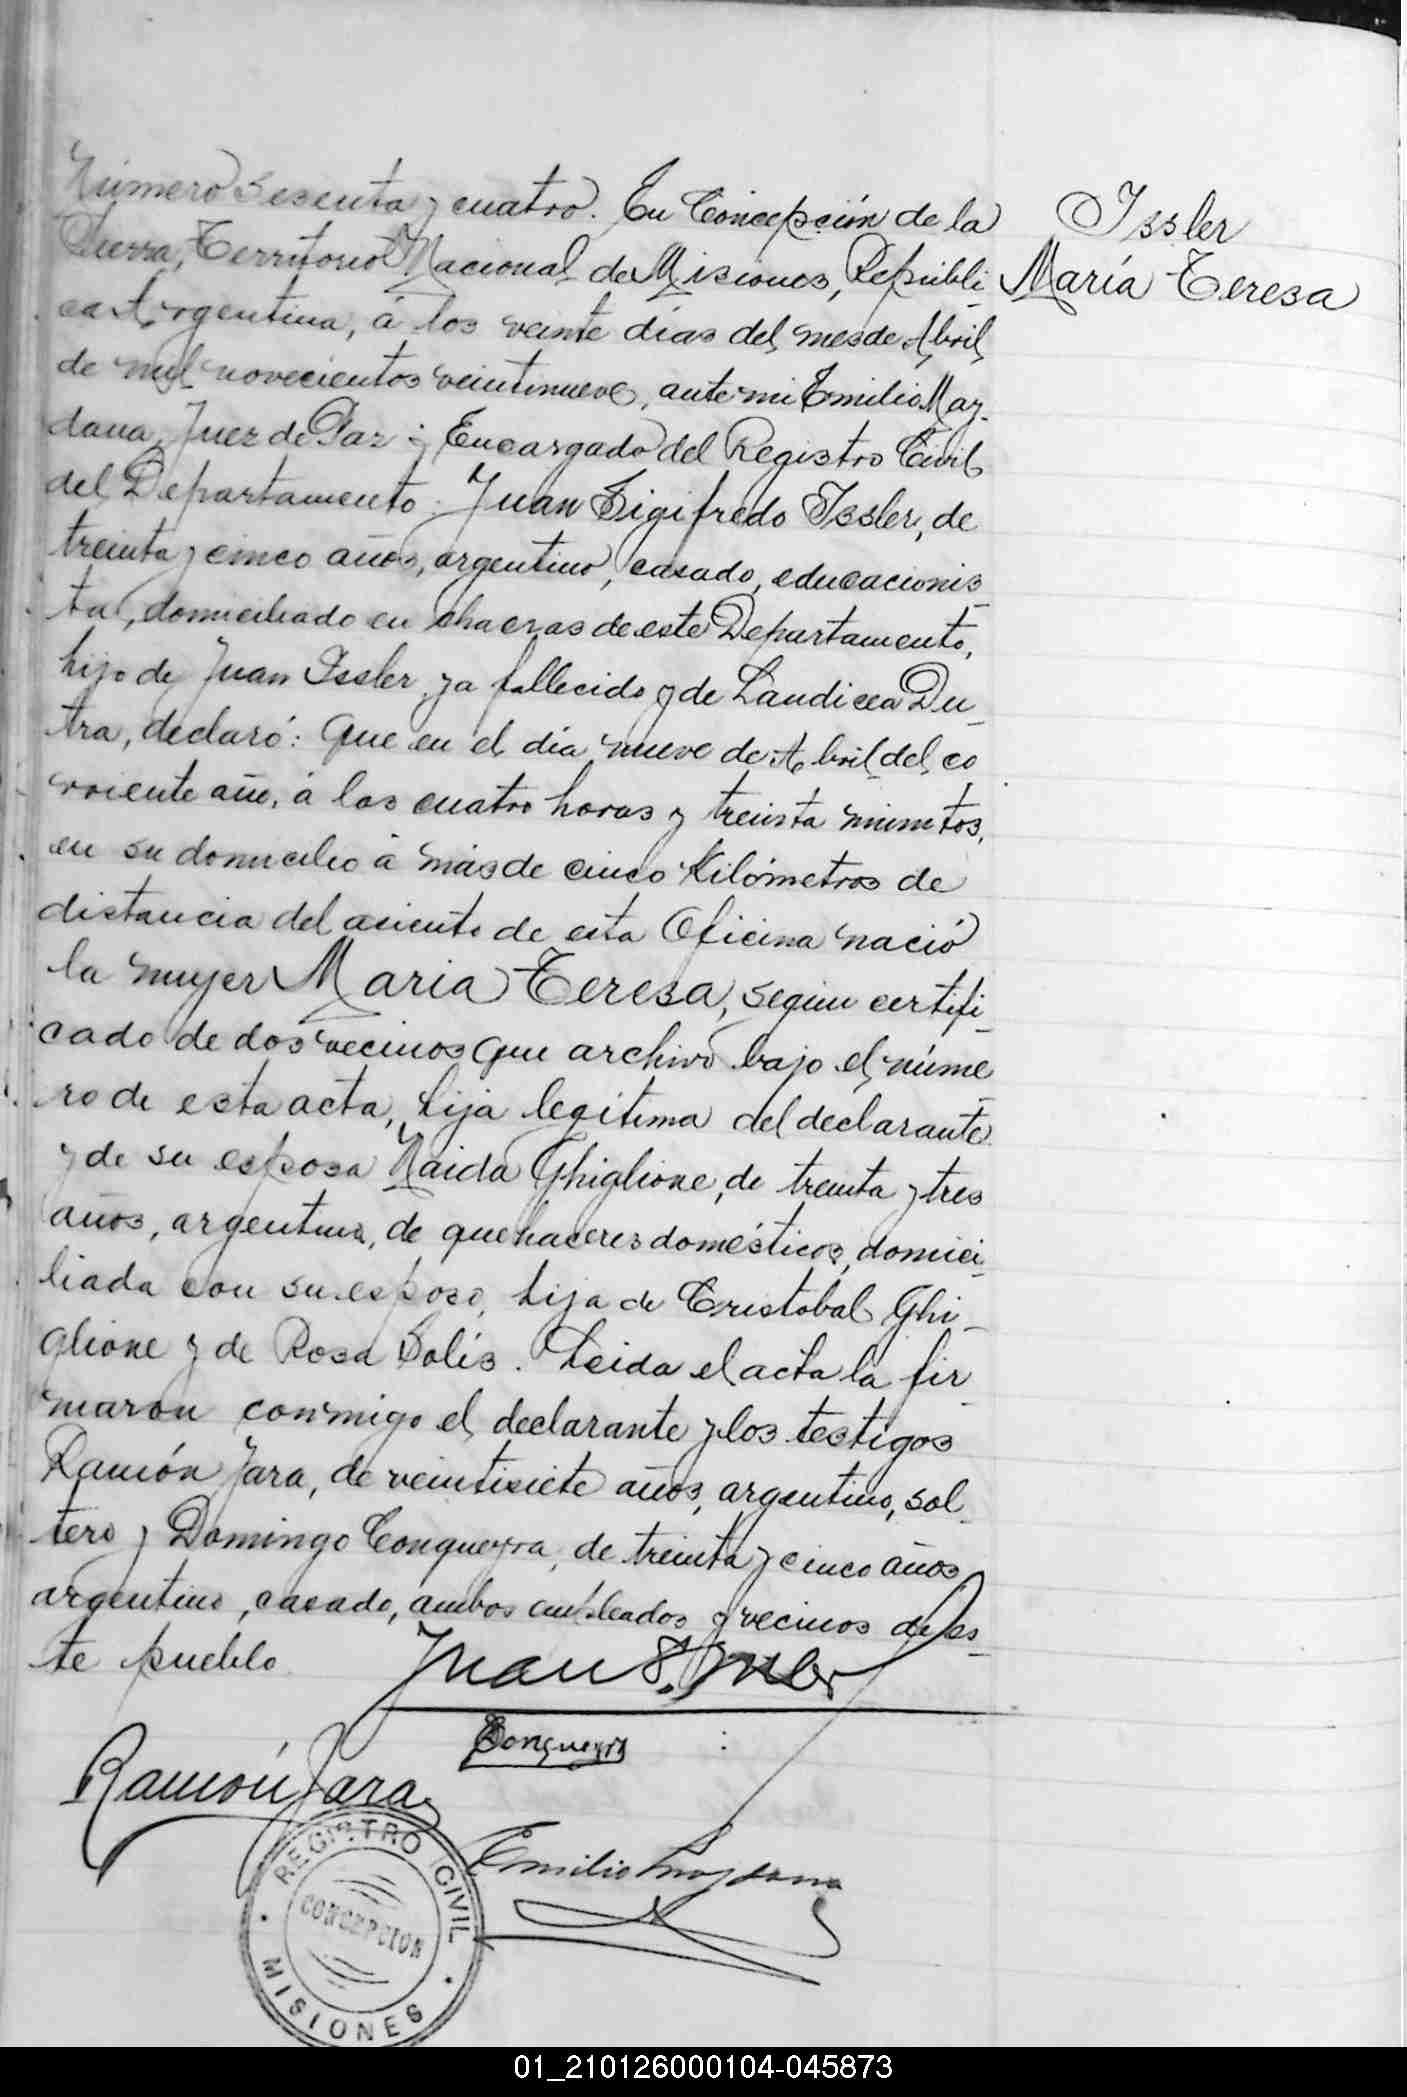 Número Sesenta y cuatro. En Concepción de la
Sierra, Territorio Nacional de Misiones, Repúbli
ca Argentina, á los veinte días del mes de Abril
de mil novecientos veintinueve, ante mi Emilio May-
dana, Juez de Paz y Encargado del Registro Civil
del Departamento. Juan Sigifredo Issler, de
treinta y cinco años, argentino, casado, educacionis-
ta, domiciliado en chacras de este Departamento,
hijo de Juan Issler, ya fallecido y de Laudicea Du-
tra, declaró: Que en el día nueve de Abril del co
rriente año, á las cuatro horas y treinta minutos,
en su domicilio á más de cinco Kilómetros de
distancia del asiento de esta Oficina nació
la mujer Maria Teresa, según certifi-
cado de dos vecinos que archivo bajo el núme-
ro de esta acta, hija legítima del declarante
y de su esposa Naida Ghiglione, de treinta y tres
años, argentina, de quehaceres domésticos, domici-
liada con su esposo, hija de Cristobal Ghi-
glione y de Rosa Solis. Leida el acta la fir-
maron conmigo el declarante y los testigos
Ramón Jara, de veintisiete años, argentino, sol-
tero y Domingo Conqueyra, de treinta y cinco años
argentino, casado, ambos empleados y vecinos de es-
te pueblo.
Issler
María Teresa
Juan S. Issler
Conqueyra
Ramón Jara
Emilio Maydana
REGISTRO CIVIL
CONCEPCION
MISIONES
01_210126000104-045873